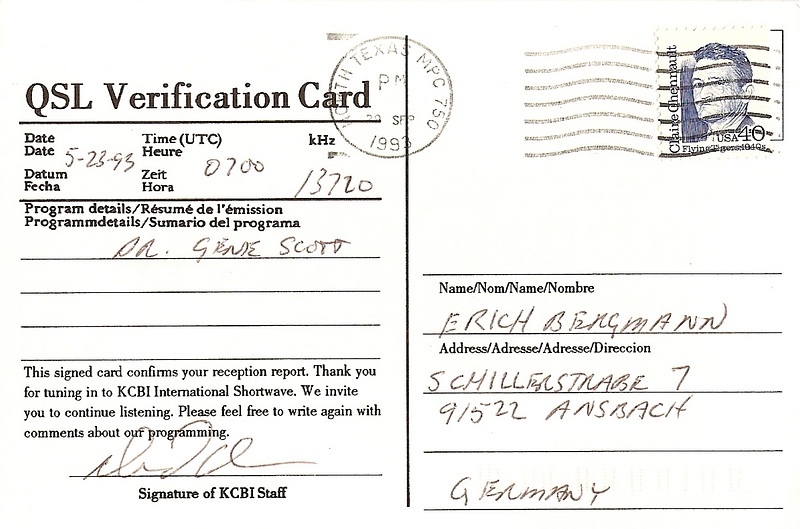 QSL Verification Card
Date
Date
Datum
Fecha
5-23-93
Time (UTC)
Heure
Zeit
Hora
0700
kHz
13720
Program details/Résumé de l'émission
Programmdetails/Sumario del programa
DR. GENE SCOTT
This signed card confirms your reception report. Thank you
for tuning in to KCBI International Shortwave. We invite
you to continue listening. Please feel free to write again with
comments about our programming.
Signature of KCBI Staff
NORTH TEXAS MPC 750
PM
SEP
1993
Claire Chennault
USA 40
Flying Tigers 1940s
Name/Nom/Name/Nombre
ERICH BERGMANN
Address/Adresse/Adresse/Direccion
SCHILLERSTRAßE 7
91522 ANSBACH
GERMANY